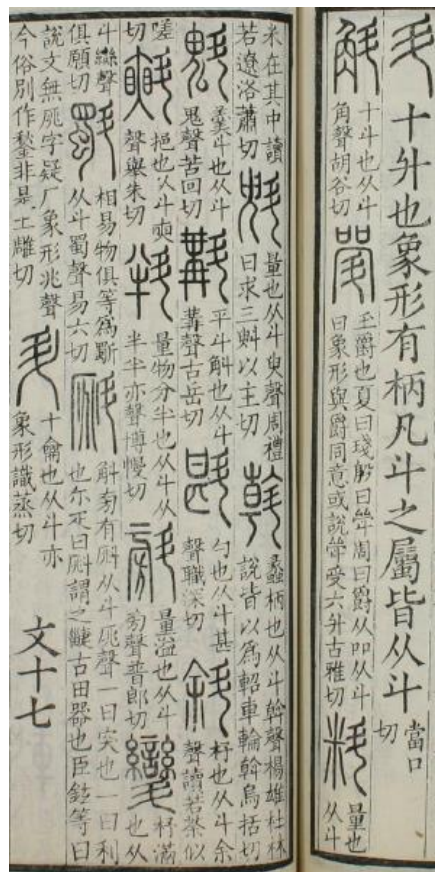 斗十升也象形有柄凡斗之屬皆从斗當口切
斛十斗也从斗角聲胡谷切斝玉爵也夏曰琖殷曰斝周曰爵从吅从斗冂象形與爵同意或說斝受六升古雅切料量也从斗
米在其中讀若遼洛蕭切斞量也从斗臾聲周禮曰求三斞以主切斡蠡柄也从斗倝聲楊雄杜林說皆以為軺車輪斡烏括切
魁羹斗也从斗鬼聲苦回切斠平斗斛也从斗冓聲古岳切斟勺也从斗甚聲職深切斜杼也从斗余聲讀若荼似
嗟切㪺挹也从斗奭聲舉朱切㪵量物分半也从斗从半半亦聲博幔切㪐量溢也从斗旁聲普郎切㪻杼滿也从
斗䜌聲俱願切斣相易物俱等為斣从斗蜀聲易六切㪿斛旁有㪿从斗𠩓聲一曰突也一曰利也尒疋曰㪿謂之疀古田器也臣鉉等曰
說文無𠩓字疑厂象形兆聲今俗別作鍫非是土雕切升十龠也从斗亦象形識蒸切文十七